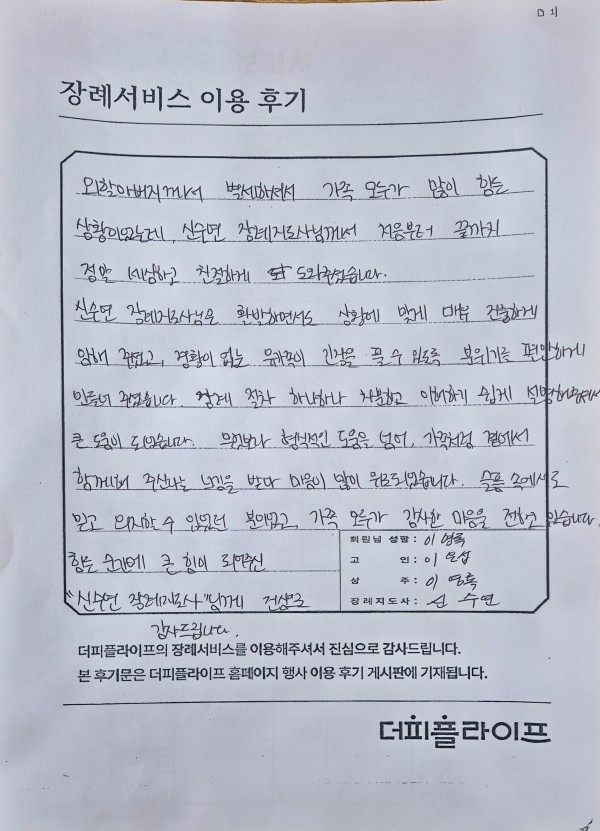 장례서비스 이용 후기
외할아버지께서 별세하셔서 가족 모두가 많이 힘든
상황이었는데, 신수연 장례지도사님께서 처음부터 끝까지
정말 세심하고 친절하게 도와주셨습니다.
신수연 장례지도사님은 활발하면서도 상황에 맞게 매우 진솔하게
임해 주셨고, 경황이 없는 유가족이 긴장을 풀 수 있도록 분위기를 편안하게
만들어 주셨습니다. 장례 절차 하나하나 차분하고 이해하기 쉽게 설명해주셔서
큰 도움이 되었습니다. 무엇보다 형식적인 도움을 넘어, 가족처럼 곁에서
함께해 주신다는 느낌을 받아 마음이 많이 위로되었습니다. 슬픔 속에서도
믿고 의지할 수 있었던 분이었고, 가족 모두가 감사한 마음을 전하고 있습니다.
힘든 순간에 큰 힘이 되어주신
"신수연 장례지도사"님께 진심으로
감사드립니다.
회원님 성함 : 이영록
고 인 : 이
상 주 : 이영록
장례지도사 : 신수연
더피플라이프의 장례서비스를 이용해주셔서 진심으로 감사드립니다.
본 후기문은 더피플라이프 홈페이지 행사 이용 후기 게시판에 기재됩니다.
더피플라이프